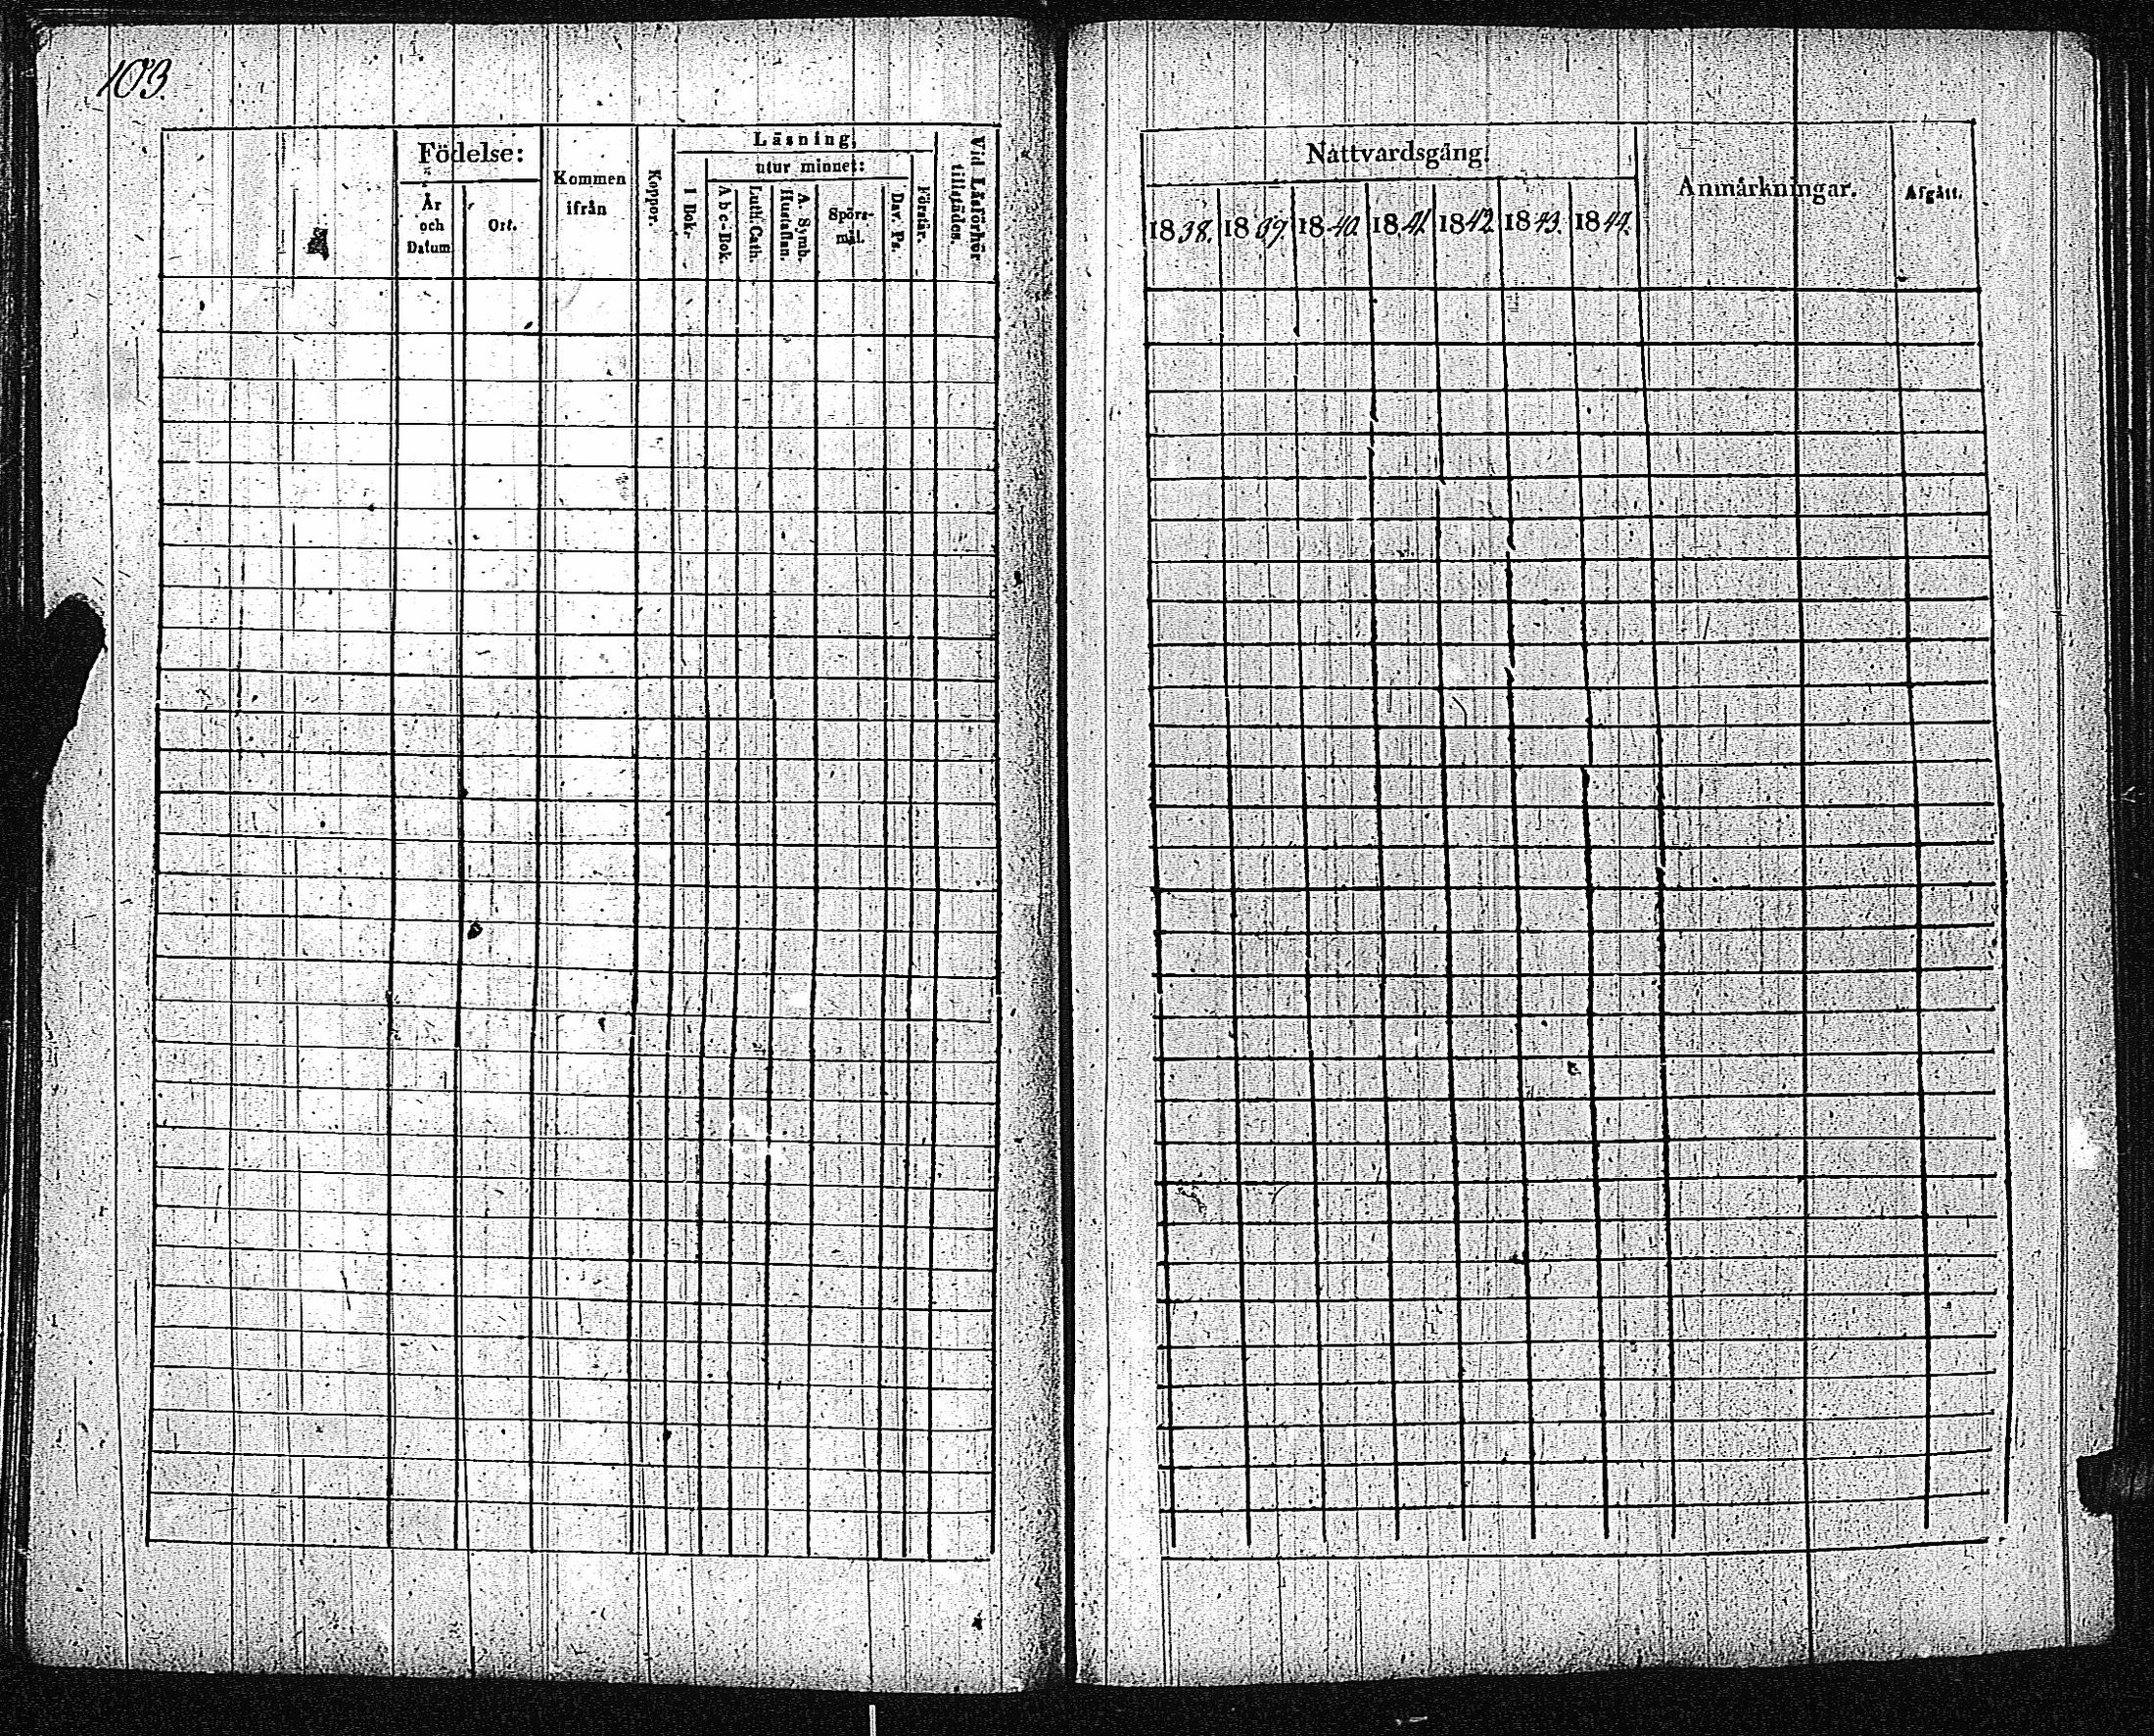 103.
Födelse:
År och Datum
Ort.
Kommen ifrån
Koppor.
Läsning,
I Bok.
utur minnet:
Abc-Bok.
Luth. Cath.
A. Symb. Hustaflan.
Spörs-mål.
Dav. Ps.
Förstår.
Vid Läsförhör tillstädes.
Nattvardsgång.
1838. 1839. 1840. 1841. 1842. 1843. 1844.
Anmärkningar.
Afgått.